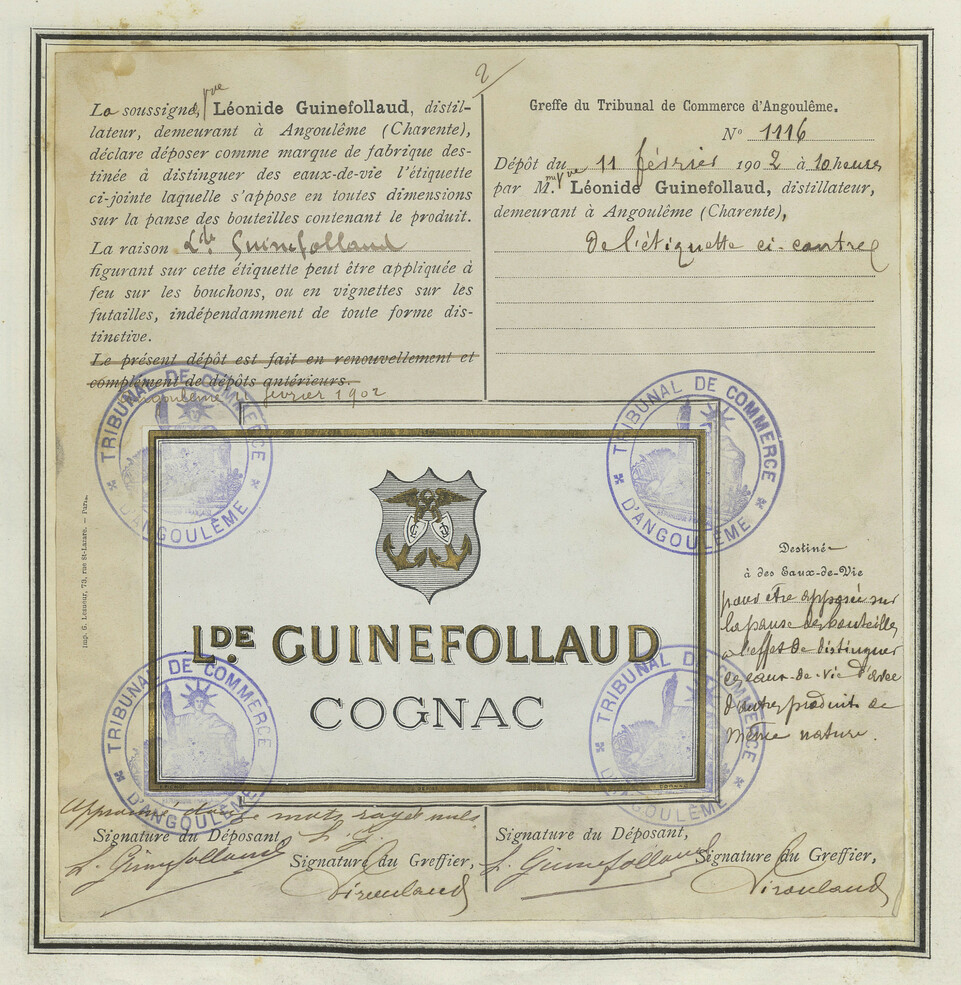 2
La soussigné, vve Léonide Guinefollaud, distil-
lateur, demeurant à Angoulême (Charente),
déclare déposer comme marque de fabrique des-
tinée à distinguer des eaux-de-vie l'étiquette
ci-jointe laquelle s'appose en toutes dimensions
sur la panse des bouteilles contenant le produit.
La raison Lde Guinefollaud
figurant sur cette étiquette peut être appliquée à
feu sur les bouchons, ou en vignettes sur les
futailles, indépendamment de toute forme dis-
tinctive.
Le présent dépôt est fait en renouvellement et
complément de dépôts antérieurs.
Angoulême 11 février 1902
Greffe du Tribunal de Commerce d'Angoulême.
No 1116
Dépôt du 11 février 1902 à 10 heures
par Mme Vve Léonide Guinefollaud, distillateur,
demeurant à Angoulême (Charente),
De l'étiquette ci-contre
TRIBUNAL DE COMMERCE
D'ANGOULÊME
TRIBUNAL DE COMMERCE
D'ANGOULÊME
Imp. G. Lesueur, 73, rue St-Lazare. — Paris.
LDE GUINEFOLLAUD
COGNAC
Destiné
à des Eaux-de-Vie
pour être apposée sur
la panse des bouteilles
à l'effet de distinguer
ces eaux-de-vie d'avec
d'autres produits de
même nature.
TRIBUNAL DE COMMERCE
D'ANGOULÊME
TRIBUNAL DE COMMERCE
D'ANGOULÊME
mots rayés nuls
L. G.
Signature du Déposant,
L. Guinefollaud
Signature du Greffier,
Signature du Déposant,
L. Guinefollaud
Signature du Greffier,